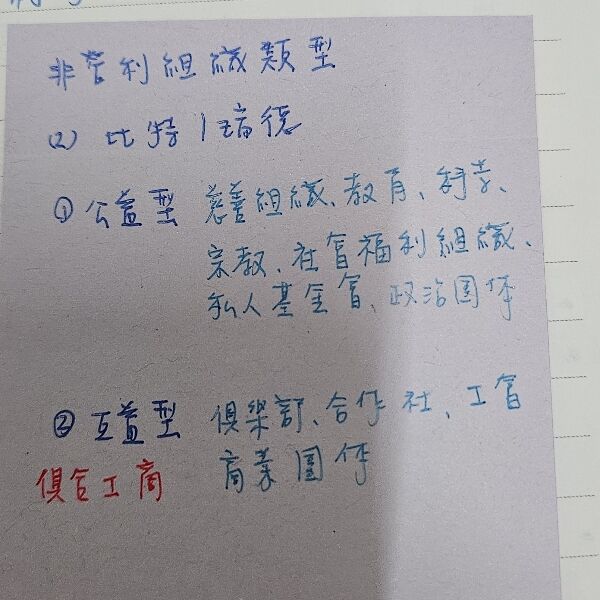 非營利組織類型
(2) 比特/瑞德
① 公益型 慈善組織、教育、科学、
宗教、社會福利組織、
私人基金會、政治團体
② 互益型 俱樂部、合作社、工會
俱合工商 商業團体